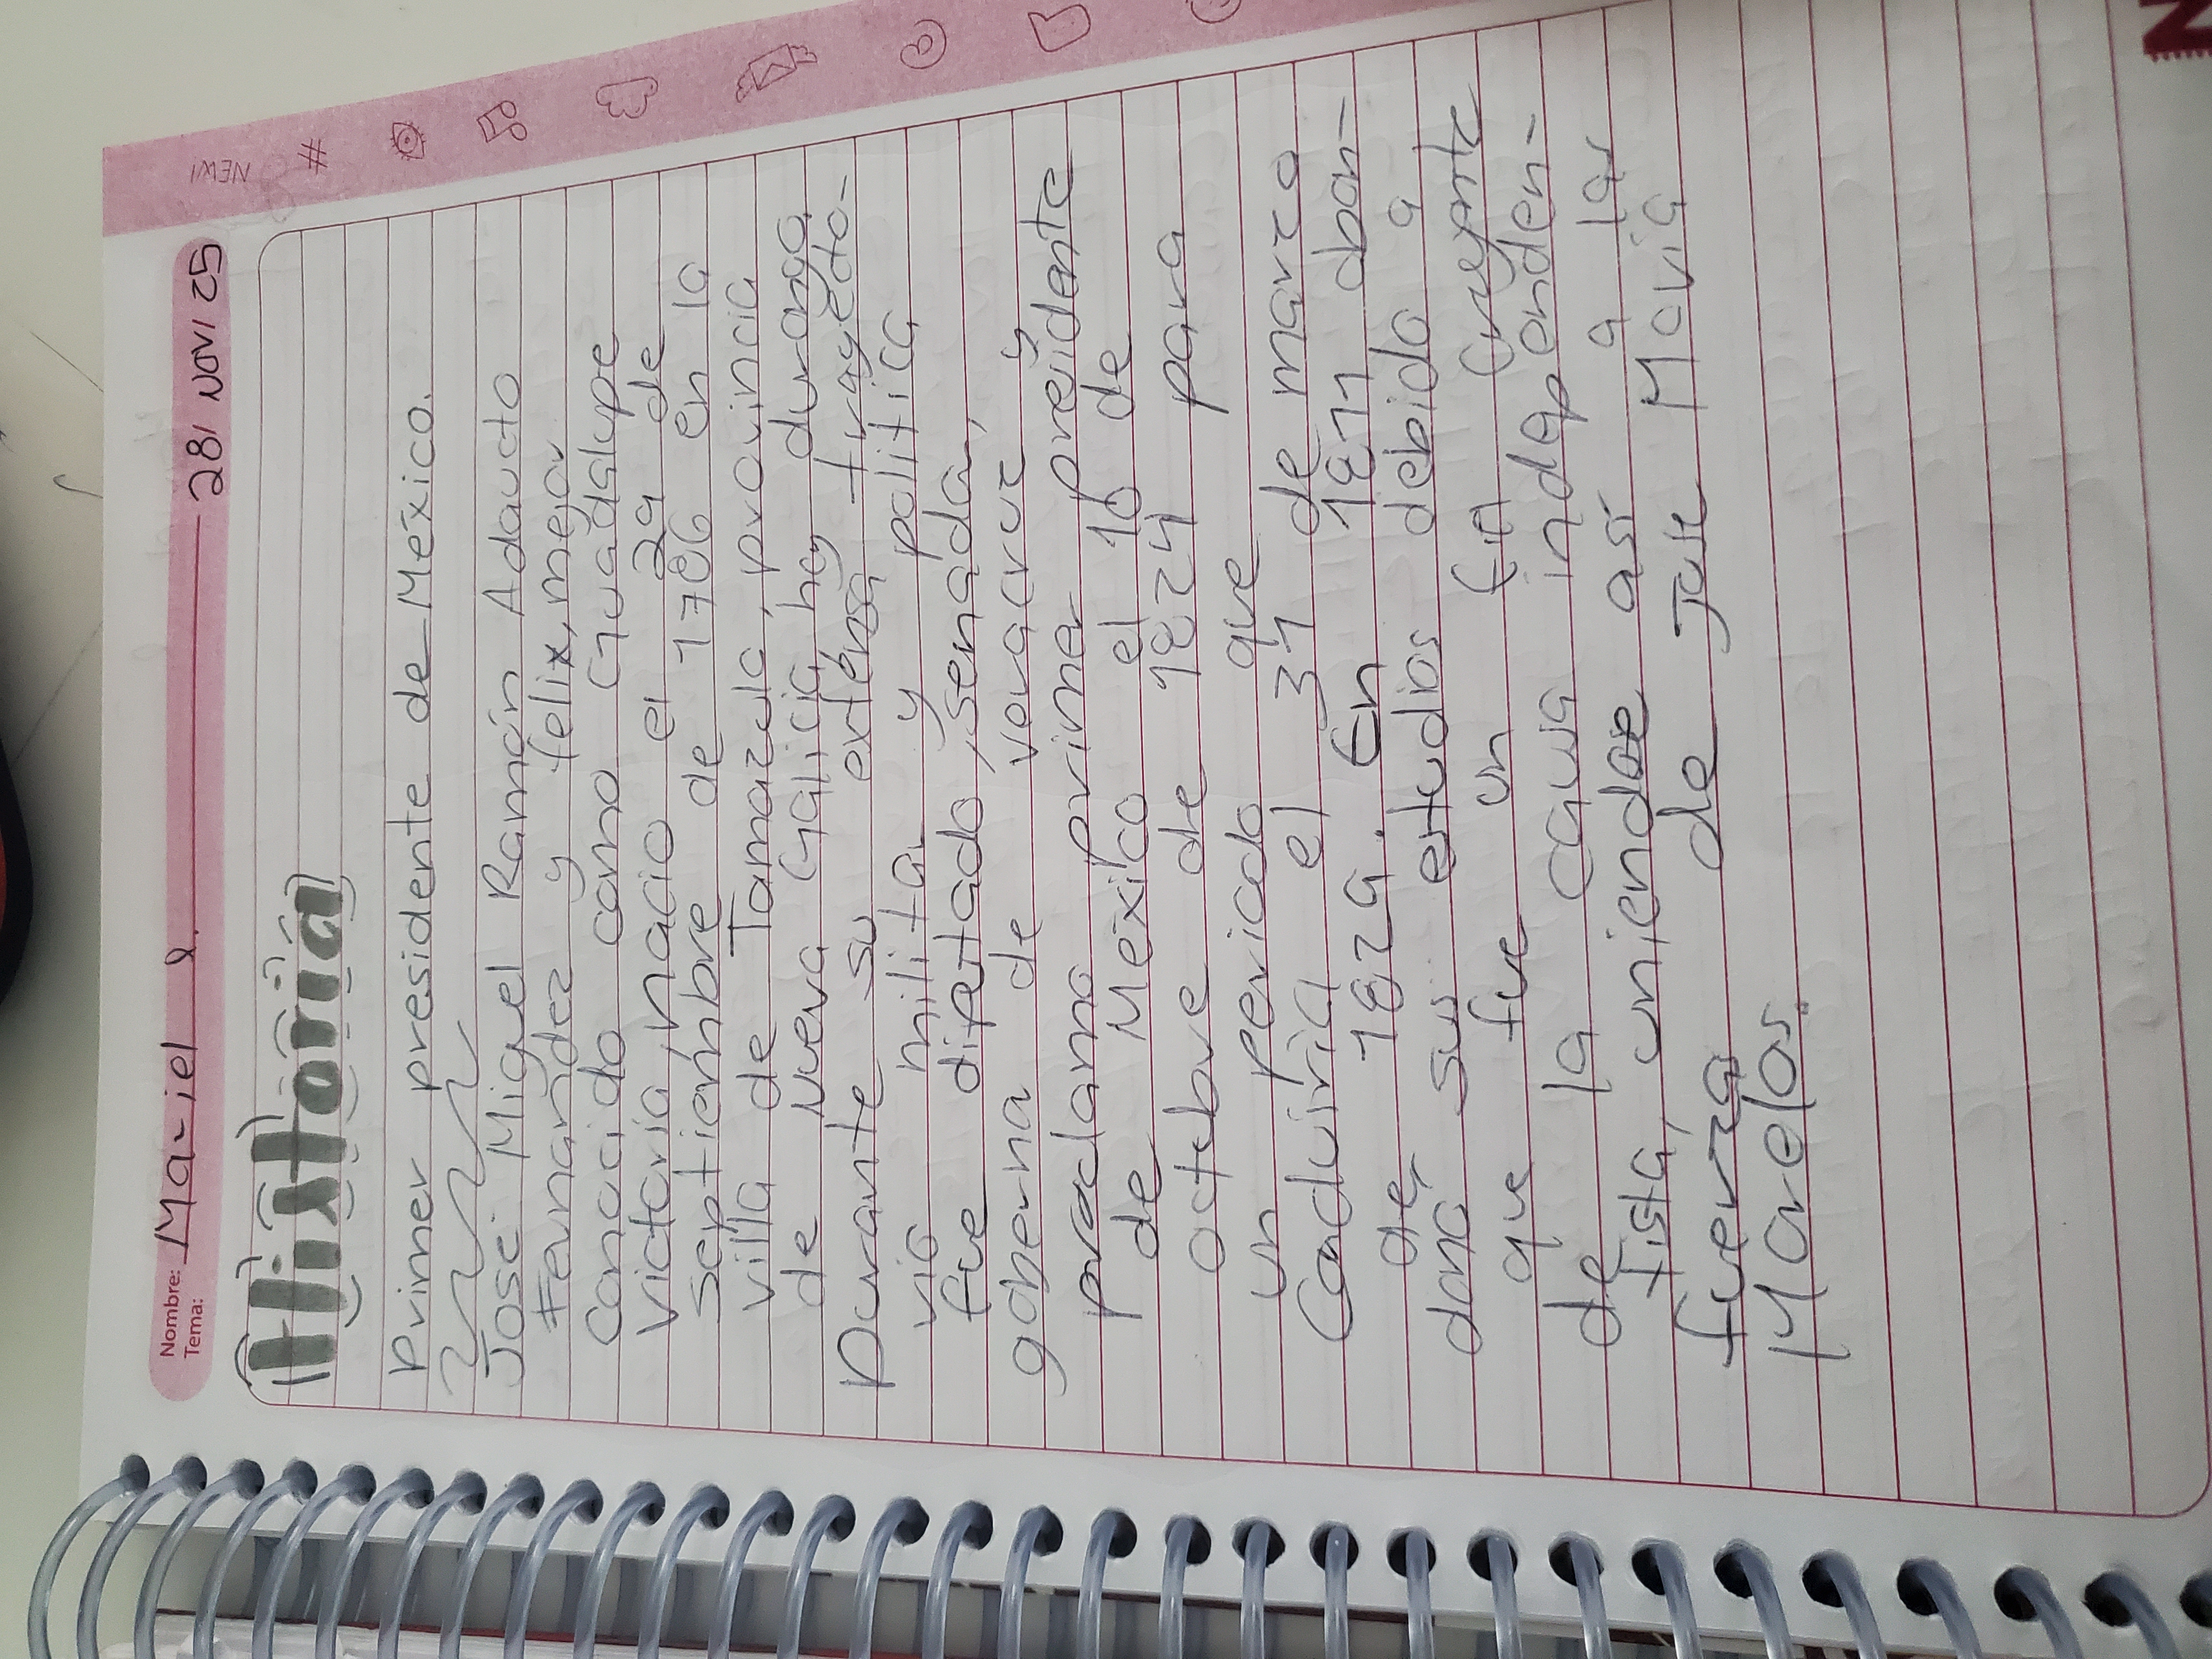 Nombre: Maziel l.
Tema: 28/ NOV/ 25
NEW!
#
Historia
Primer presidente de México.
José Miguel Ramón Adaucto
Fernández y felix, mejor
Conocido como Guadalupe
Victoria, nacio el 29 de
septiembre de 1786 en la
villa de Tamazula, provincia
de Nueva Galicia, hoy durango.
Durante su extensa trayecto-
ria militar y politica
fue dipitado, senador,
goberna de veracruz y
proclamo primer preidente
de México el 10 de
octubre de 1824 para
un periodo que
Conduiria el 31 de marzo
de 1829. En 1811 aban-
dono sus estudios debido a
que fue un fiel creyente
de la causa independen-
tista, uniendose así a las
fuerza de Jose Maria
Morelos.